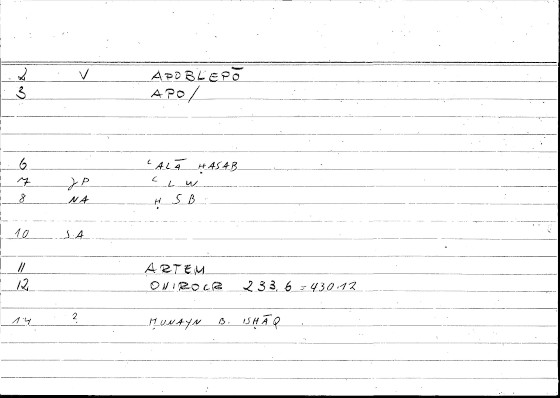 2 V APOBLEPŌ
3 APO/
6 ʿALĀ ḤASAB
7 JP ʿ L W
8 NA Ḥ S B
10 SA
11 ARTEM
12 ONIROCR 233,6 = 430.12
14 ? ḤUNAYN B. ISḤĀQ